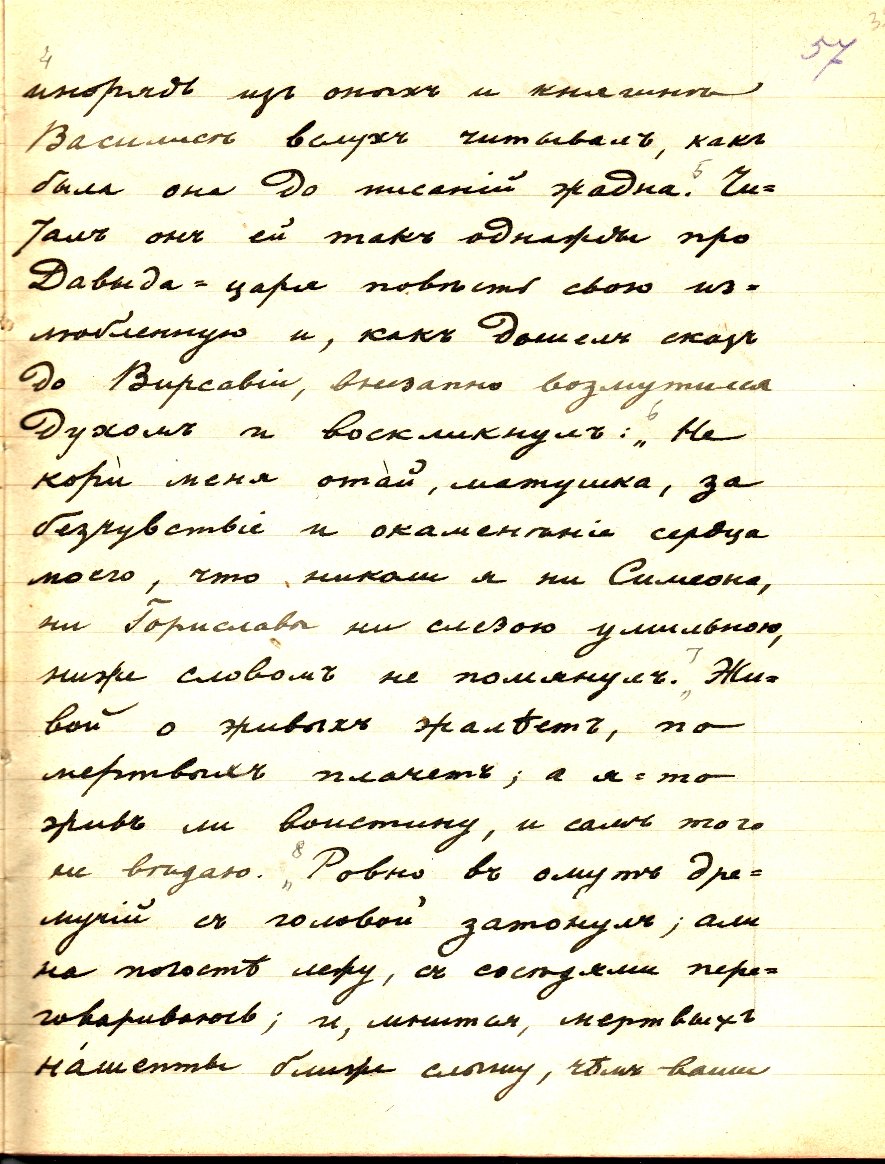 4 57
инорядь изъ оныхъ и княгинѣ
Василисѣ вслухъ читывалъ, какъ
была она до писаній жадна. 5 Чи=
талъ онъ ей такъ однажды про
Давыда=царя повѣсть свою из=
любленную и, какъ дошелъ сказъ
до Вирсавіи, внезапно возмутился
духомъ и воскликнулъ: 6 „Не
кори̇ меня ота́й, матушка, за
безчувствіе и окаменѣніе сердца
моего, что николи я ни Симеона,
ни Гориславы ни слезою умильною,
ниже словомъ не помянулъ. 7 „Жи=
вой о живыхъ жалѣетъ, по
мертвыхъ плачетъ; а я=то
живъ ли воистину, и самъ того
не вѣдаю. 8 „Ровно въ омутъ дре=
мучій съ головой затону́лъ; али
на погостѣ лежу, съ сосѣдями пере=
говариваюсь; и, мнится, мертвыхъ
на́шепты ближе слышу, чѣмъ ваши